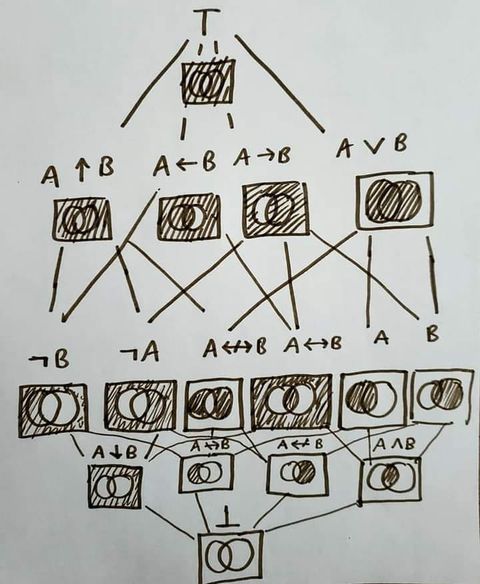 ⊤
A ↑ B A ← B A → B A ∨ B
¬B ¬A A ↮ B A ↔ B A B
A ↓ B A ↛ B A ↚ B A ∧ B
⊥